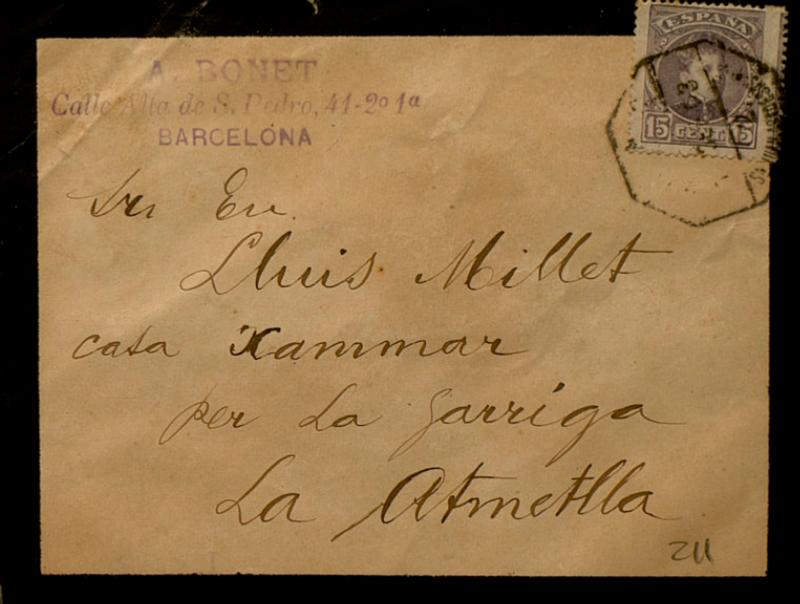 A. BONET
Calle Alta de S. Pedro, 41-2º 1ª
BARCELONA
ESPAÑA
15 CENT 15
Sr. En
Lluis Millet
casa Xammar
per La Garriga
La Atmetlla
211